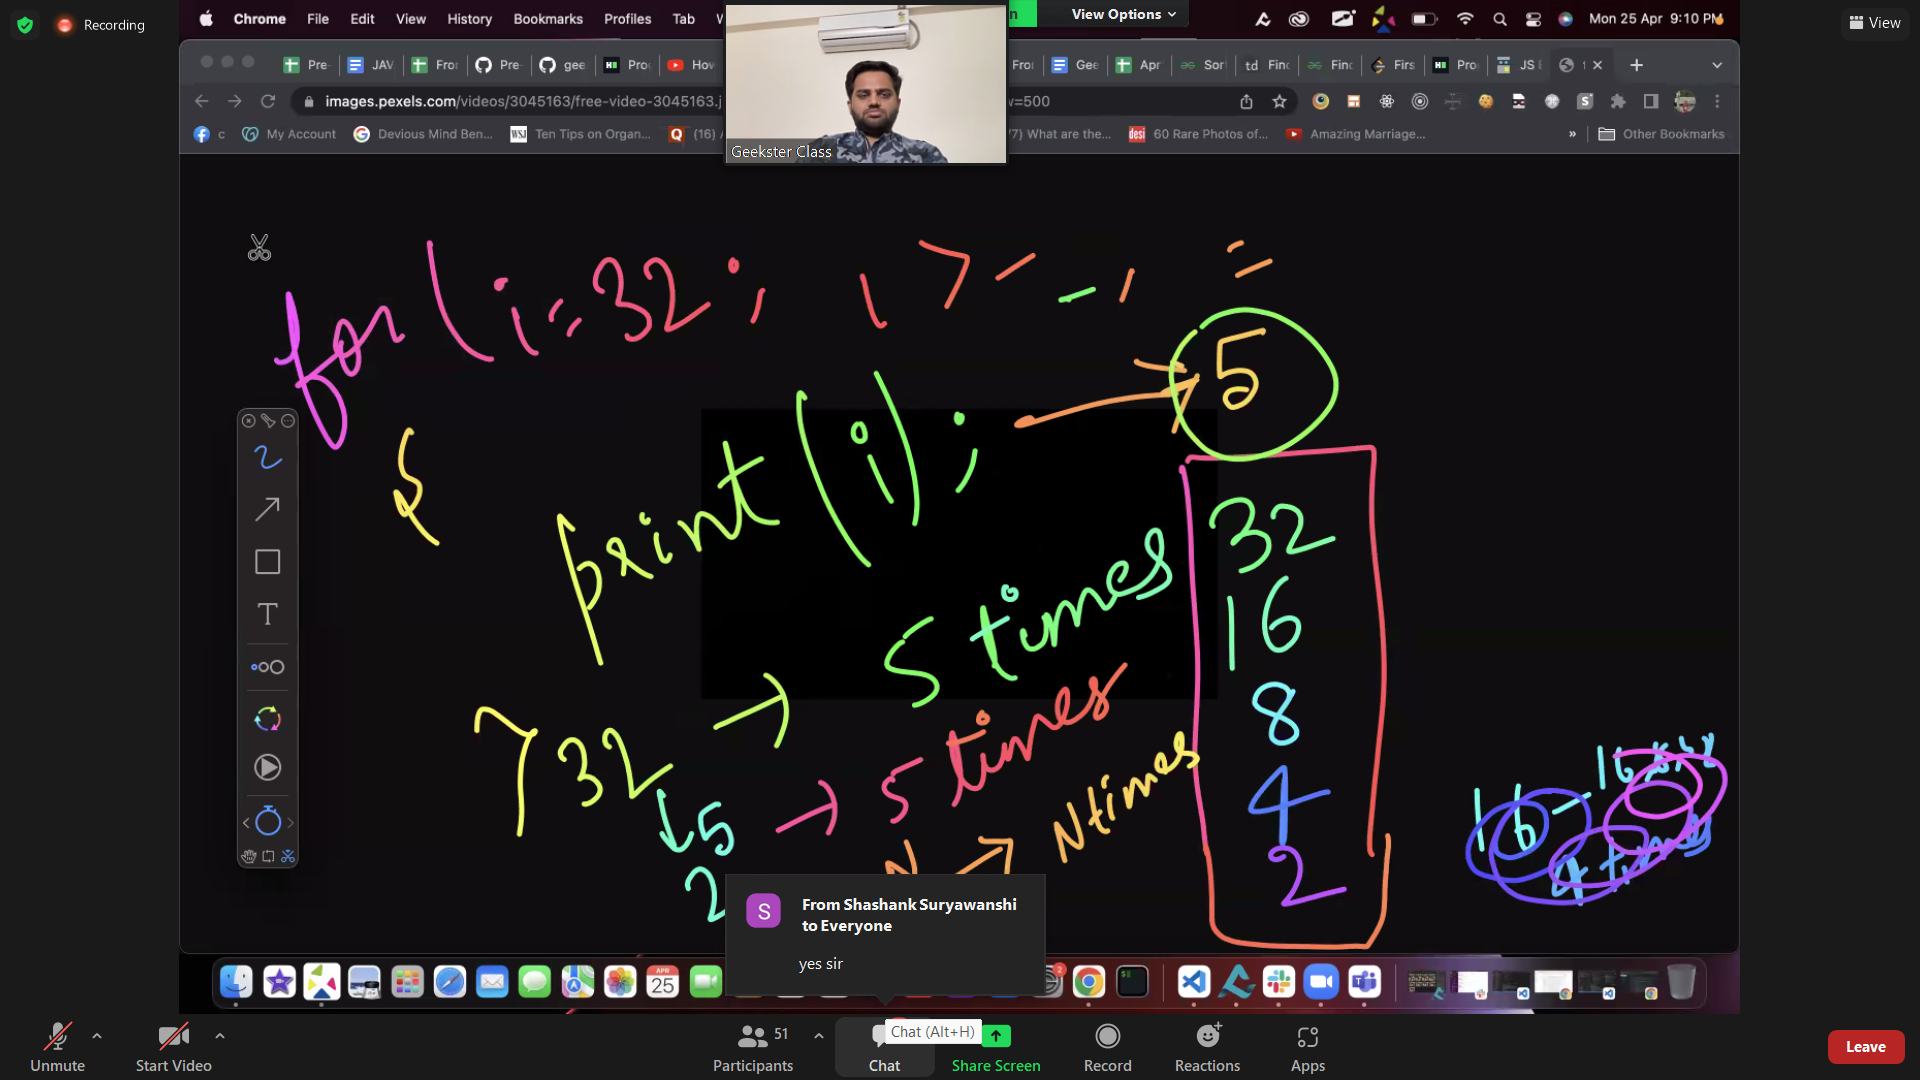 Recording
Chrome File Edit View History Bookmarks Profiles Tab
View Options
Mon 25 Apr 9:10 PM
View
Pre- JAV Fror Pre- gee Pro How
Fror Gee Apr Sor Finc Finc Firs Pro JS E
images.pexels.com/videos/3045163/free-video-3045163.j
w=500
c My Account Devious Mind Ben... Ten Tips on Organ... (16)
/7) What are the... 60 Rare Photos of... Amazing Marriage... » Other Bookmarks
Geekster Class
for (i=32; i > -
print(i); → 5
32
16
8
4
2
5 times
32 → 5 times
5
N → N times
16 -
4 times
T
From Shashank Suryawanshi
to Everyone
yes sir
S
APR
25
2
Chat (Alt+H)
Unmute
Start Video
51
Participants
Chat
Share Screen
Record
Reactions
Apps
Leave